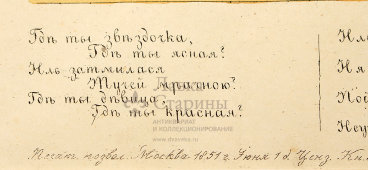 Гдѣ ты звѣздочка,
Гдѣ ты ясная?
Иль затмилася
Тучей мрачною?
Гдѣ ты дѣвица,
Гдѣ ты красная?
Печат. позвол. Москва 1851 г. Июня 1 д. Ценз. Кн.
Лавка
Старины
АНТИКВАРИАТ
И КОЛЛЕКЦИОНИРОВАНИЕ
www.dvaveka.ru